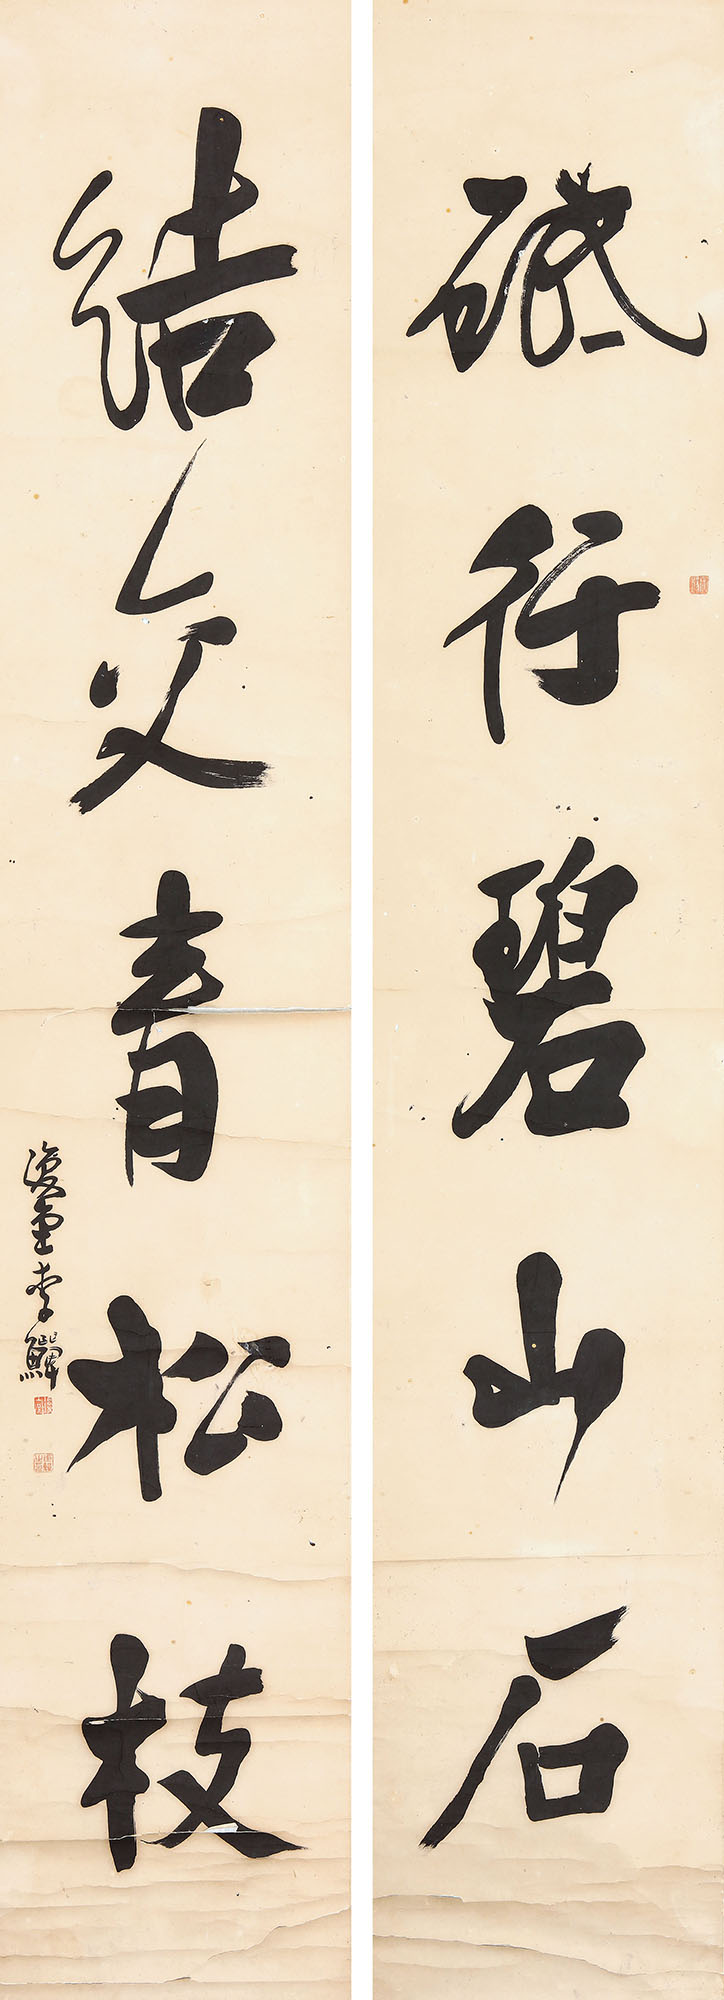 砥行碧山石
結交青松枝
復堂李鱓